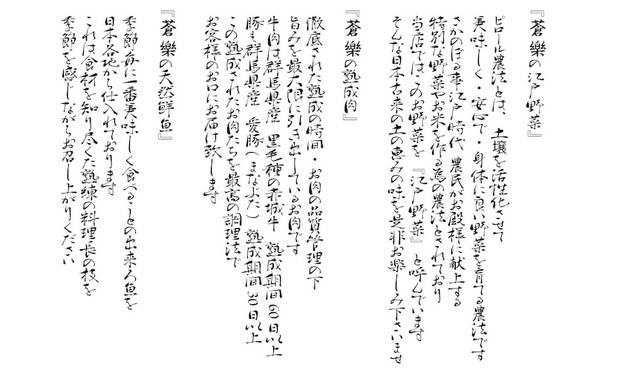 『蒼樂の江戸野菜』
ピロール農法とは、土壌を活性化させて
美味しく・安心で・身体に良い野菜を育てる農法です
さかのぼる事江戸時代 農民がお殿様に献上する
特別な野菜やお米を作る為の農法とされており
当店ではこのお野菜を『江戸野菜』と呼んでいます
そんな日本古来の土の恵みの味を是非お楽しみ下さいませ
『蒼樂の熟成肉』
徹底された熟成の時間・お肉の品質管理の下
旨みを最大限に引き出しているお肉です
牛肉は群馬県産 黒毛種の赤城牛 熟成期間60日以上
豚も群馬県産 愛豚(まなぶた) 熟成期間30日以上
この熟成されたお肉たちを最高の調理法で
お客様のお口にお届け致します
『蒼樂の天然鮮魚』
季節毎に一番美味しく食べることの出来る魚を
日本各地から仕入れております
これは食材を知り尽くした熟練の料理長の技を
季節を感じながらお召し上がりください